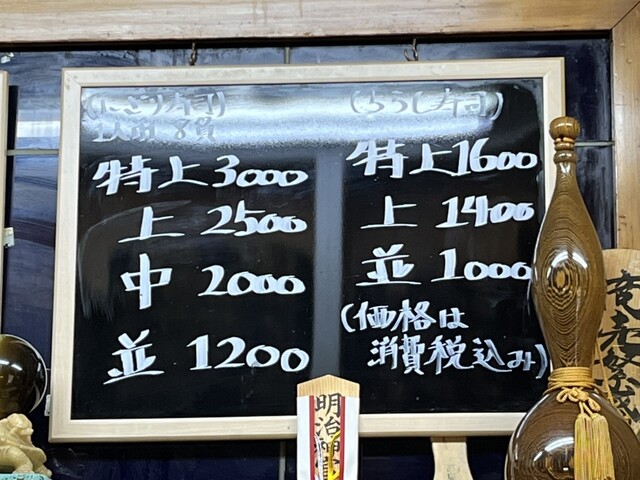 (にぎり寿司)
1人前 8貫
特上 3000
上 2500
中 2000
並 1200
(ちらし寿司)
特上 1600
上 1400
並 1000
(価格は
消費税込み)
明治神宮